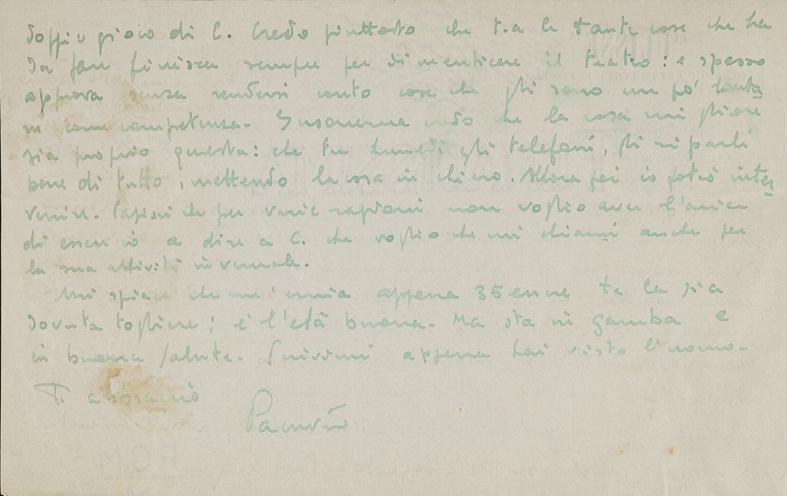 doppio gioco di C. Credo piuttosto che tra le tante cose che ha
da fare finisca sempre per dimenticare il teatro: e spesso
approva senza rendersi conto cose che gli sono un po' lonta
ne come competenza. Insomma credo che la cosa migliore
sia proprio questa: che tu lunedì gli telefoni, gli riparli
bene di tutto, mettendo la cosa in chiaro. Allora poi io potrò inter
venire. Capisci che per varie ragioni non voglio aver l'aria
di esser io a dire a C. che voglio che mi chiami anche per
la sua attività invernale.
Mi spiace che un'ernia appena 35enne te la sia
dovuta togliere; è l'età buona. Ma sta in gamba e
in buona salute. Scrivimi appena hai visto l'uomo.
Ti abbraccio